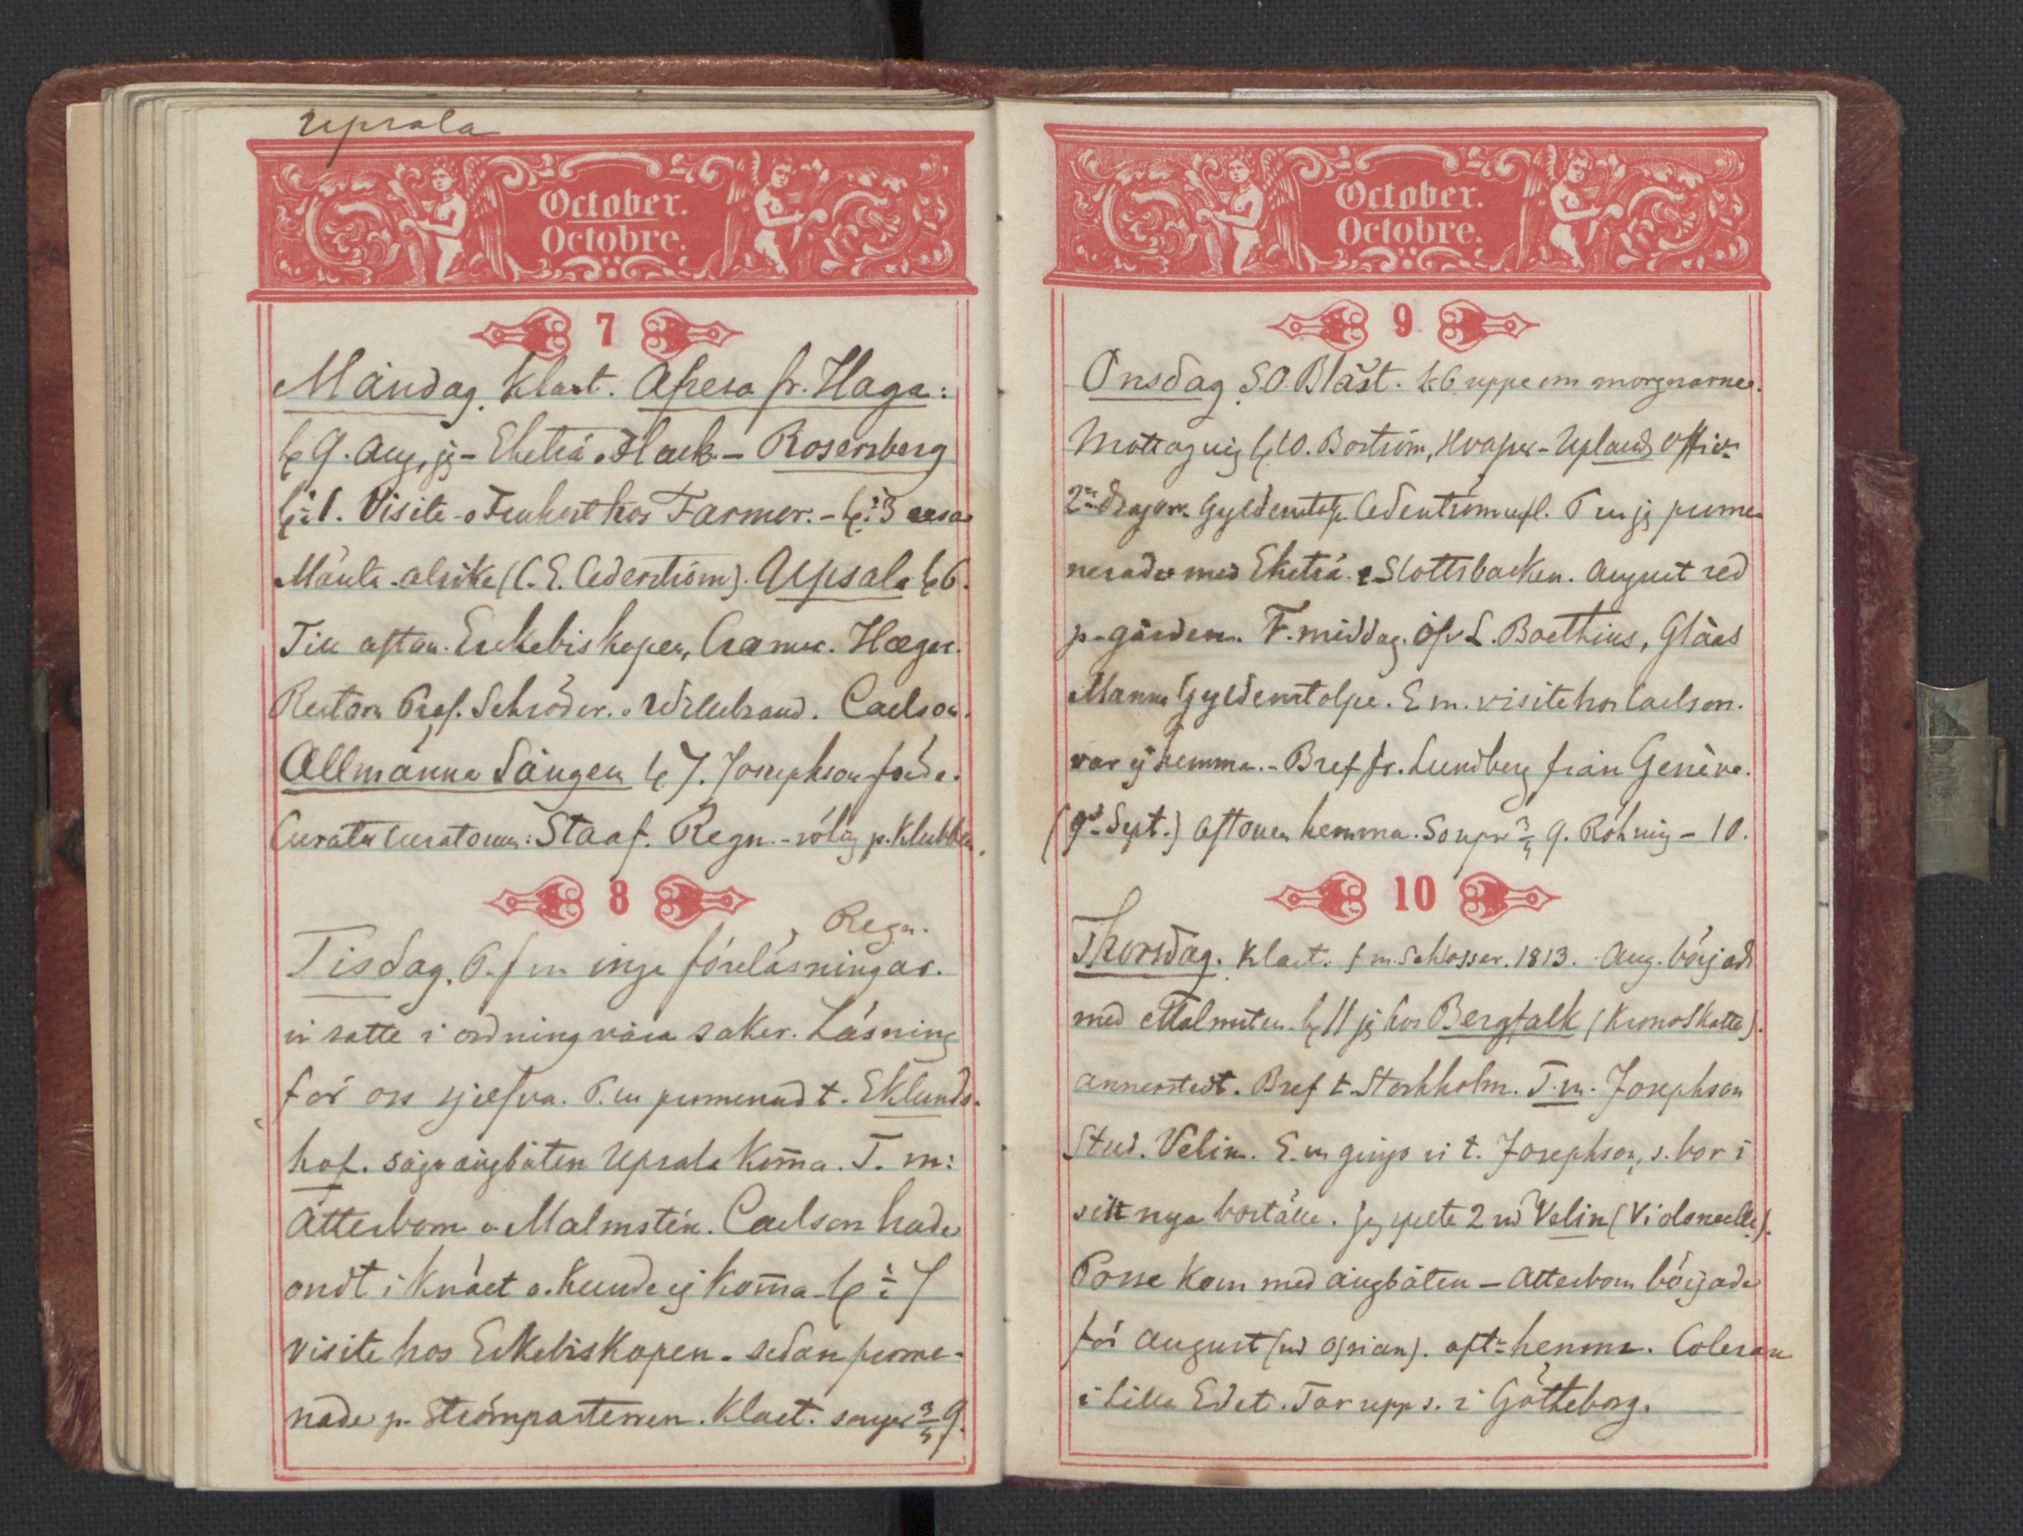 Upsala
October.
Octobre.
7
Måndag. Klart. Afresa fr. Haga:
kl 9. Aug, jg - Eketrä o Hack - Rosersberg
kl ½ 1. Visite o Frukost hos Farmor. - kl ½ 3 resa
Märsta - alsike (C. E. Cederström). Upsala kl 6.
Till afton. Erkebiskopen, Cramér. Hæger.
Rectorn Prof. Schröder. o Willebrand. Carlson.
Allmänna Sången kl 7. Josephson förde.
Curator Curatorum: Staaf. Regn. - rölig p. Klubben.
8
Regn.
Tisdag. P. f m inga föreläsningar.
vi satte i ordning våra saker. Läsning
för oss sjelfva. P. m promenad t. Eklunds-
hof. sågo ångbåten Upsala kom̄a. T. m:
Atterbom o Malmstén. Carlson hade
ondt i knäet o. kunde ej kom̄a. kl ½ 7
visite hos Erkebiskopen. sedan prome-
nade p. Strömparterren. Klart. soupé ¾ 9.
October.
Octobre.
9
Onsdag S.O. Blåst. k 6 uppe om morgnarne.
Mottog vig kl 10. Boström, Upland offic.
2ne dragon. Gyldenstolpe Cederström m fl. P m jg prome-
nerade med Eketrä. Slottsbacken. August red
p. gården. T. middag. öfv L. Boethius, Glåas
Manne Gyldenstolpe. E m. visite hos Carlson.
var ej hemma. - Bref fr. Lundberg från Genève.
(9d Sept.) Aftonen hemma. Soupé ¾ 9. Röhnig - 10.
10
Thorsdag. Klart. f m. Schlosser. 1813. Aug. började
med Malmsten. kl 11 jg hos Bergfalk (Kronoskatte).
Annerstedt. Bref t. Stockholm. T. m. Josephson
Stud. Velin. E. m gingo vi t. Josephson, s. bor i
sitt nya boställe. jg spelte 2 m Velin (Violoncelle).
Posse kom med ångbåten - Atterbom började
för August (m Ossian). aftn hemma.
i Lilla Edet. Tar upp s. i Götheborg.